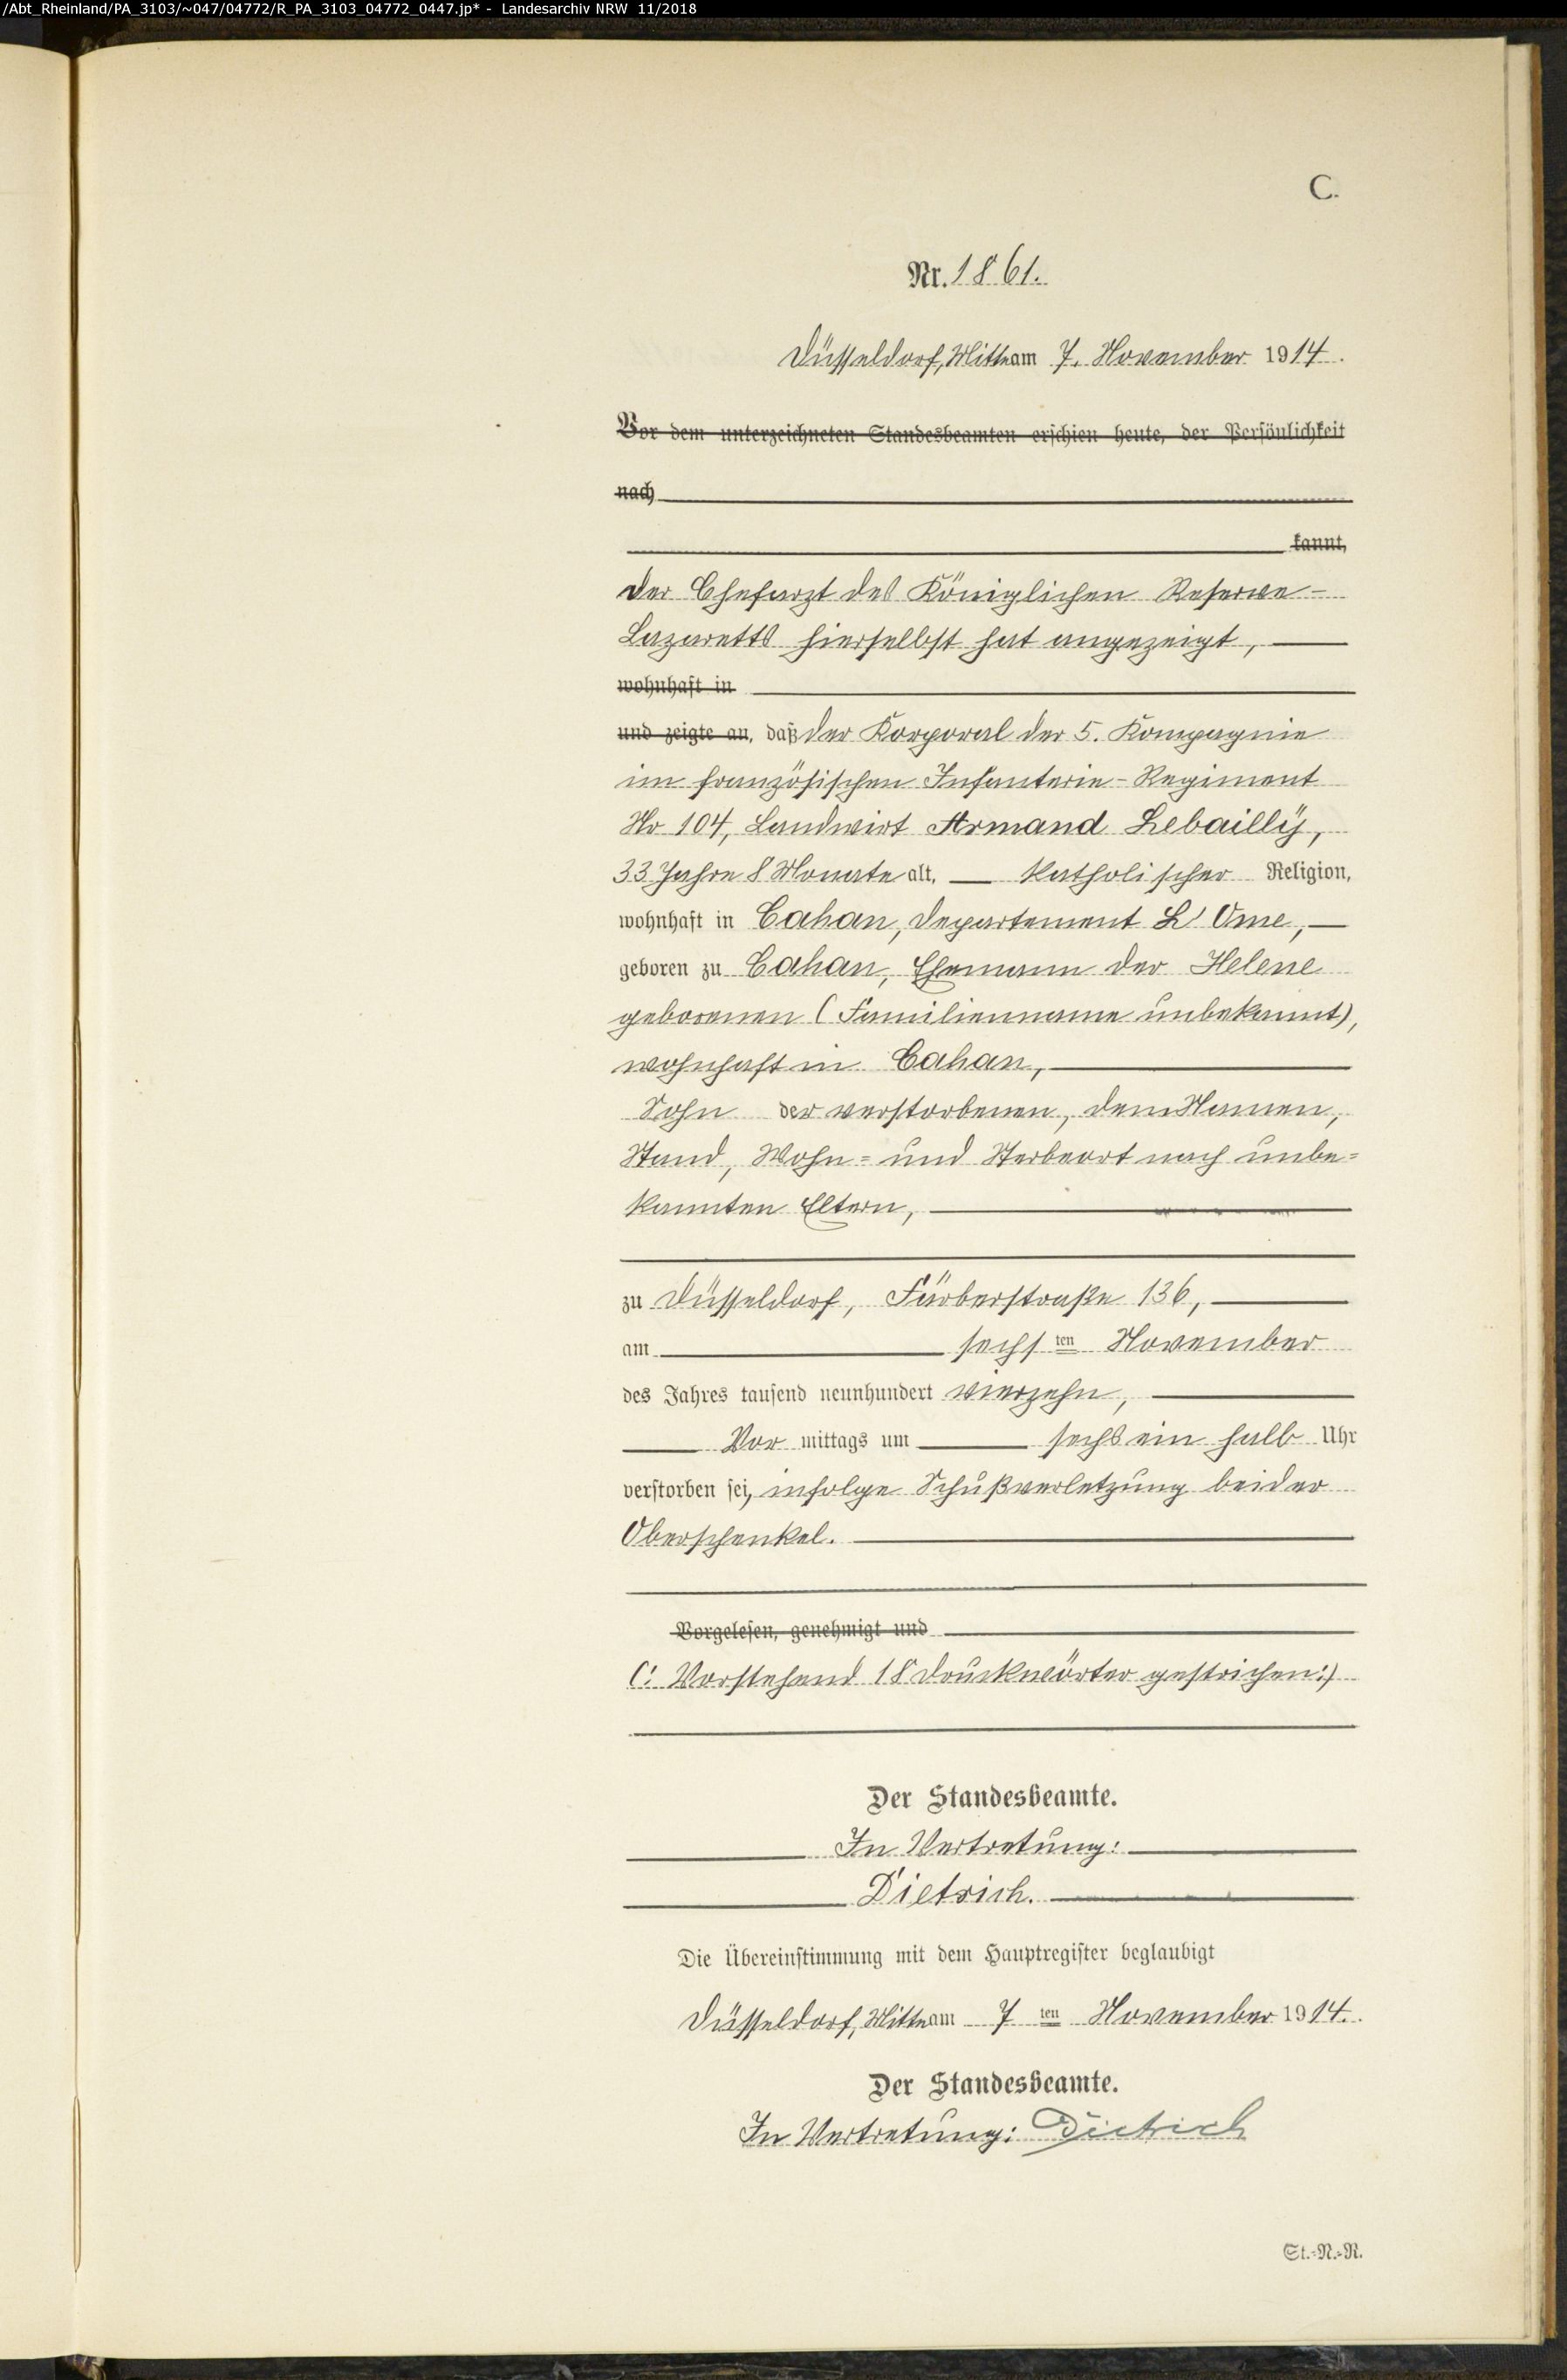 /Abt_Rheinland/PA_3103/~047/04772/R_PA_3103_04772_0447.jp* - Landesarchiv NRW 11/2018
C.
Nr. 1861.
Düsseldorf, Mitte am 7. November 1914.
Vor dem unterzeichneten Standesbeamten erschien heute, der Persönlichkeit
nach
kannt,
Der Chefarzt des Königlichen Reserve-
Lazaretts hierselbst hat angezeigt,
wohnhaft in
und zeigte an, daß der Korporal der 5. Kompagnie
im französischen Infanterie-Regiment
Nr 104, Landwirt Armand Lebailly,
33 Jahre 8 Monate alt, katholischer Religion,
wohnhaft in Cahan, Departement L' Orne,
geboren zu Cahan, Ehemann der Helene
geborenen (Familienname unbekannt),
wohnhaft in Cahan,
Sohn der verstorbenen, dem Namen,
Stand, Wohn= und Sterbeort nach unbe=
kannten Eltern,
zu Düsseldorf, Färberstraße 136,
am sechsten November
des Jahres tausend neunhundert vierzehn,
Vor mittags um sechs ein halb Uhr
verstorben sei, infolge Schußverletzung beider
Oberschenkel.
Vorgelesen, genehmigt und
(: Vorstehend 18 Druckwörter gestrichen :)
Der Standesbeamte.
In Vertretung:
Dietrich.
Die Übereinstimmung mit dem Hauptregister beglaubigt
Düsseldorf, Mitte am 7ten November 1914.
Der Standesbeamte.
In Vertretung: Dietrich
St.=N.=R.